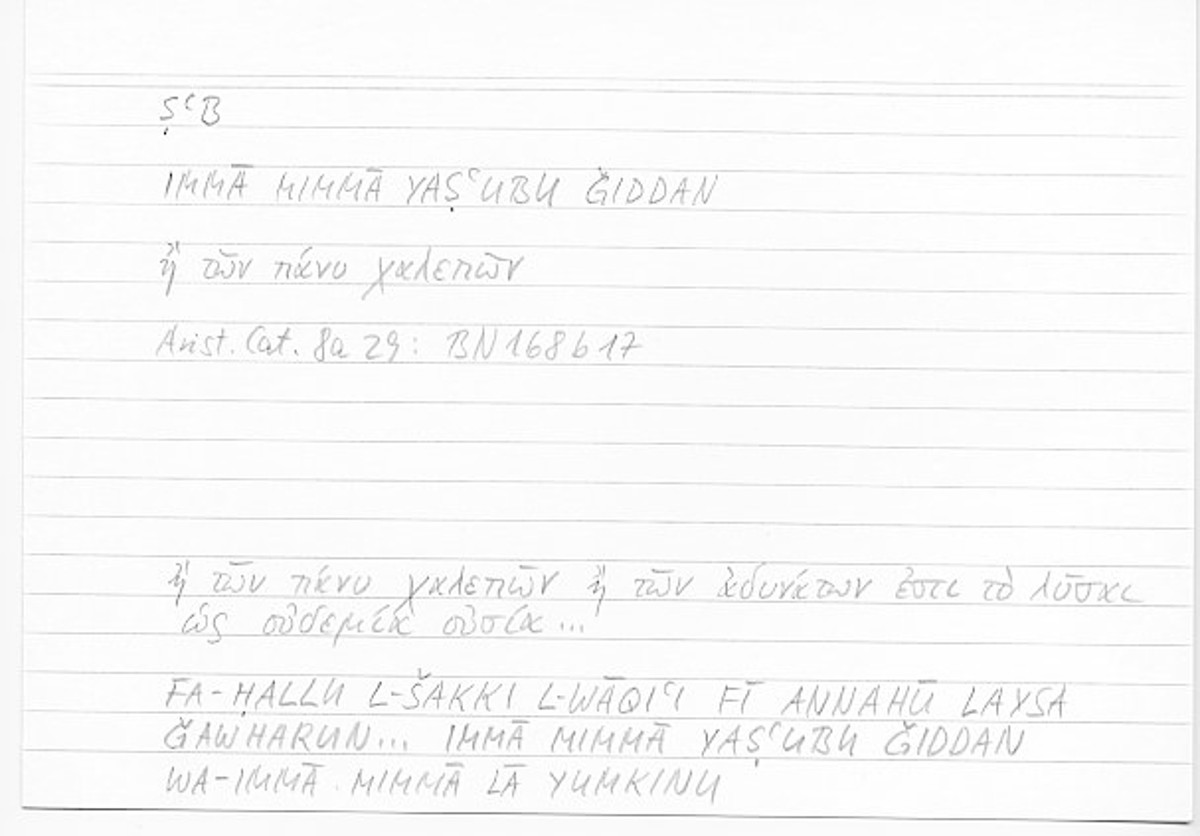 ṢʿB
IMMĀ MIMMĀ YAṢʿUBU ǦIDDAN
ἢ τῶν πάνυ χαλεπῶν
Arist. Cat. 8a 29: BN 168b17
ἢ τῶν πάνυ χαλεπῶν ἢ τῶν ἀδυνάτων ἐστι τὸ λῦσαι
ὡς οὐδεμία οὐσία...
FA-ḤALLU L-ŠAKKI L-WĀQIʿI FĪ ANNAHŪ LAYSA
ǦAWHARUN... IMMĀ MIMMĀ YAṢʿUBU ǦIDDAN
WA-IMMĀ MIMMĀ LĀ YUMKINU